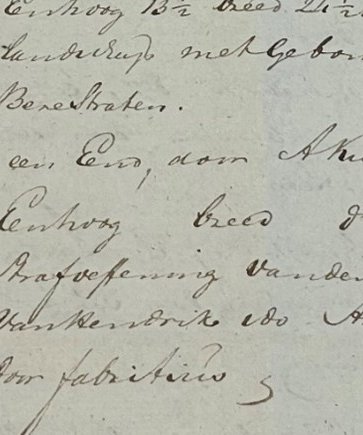 Enhoog 13½ breed 21½
landschap met Gebou
BereStraten.
een End, door AKu
Enhoog breed d
Strafoeffening vanden
VanHendrik ido A
door fabritius